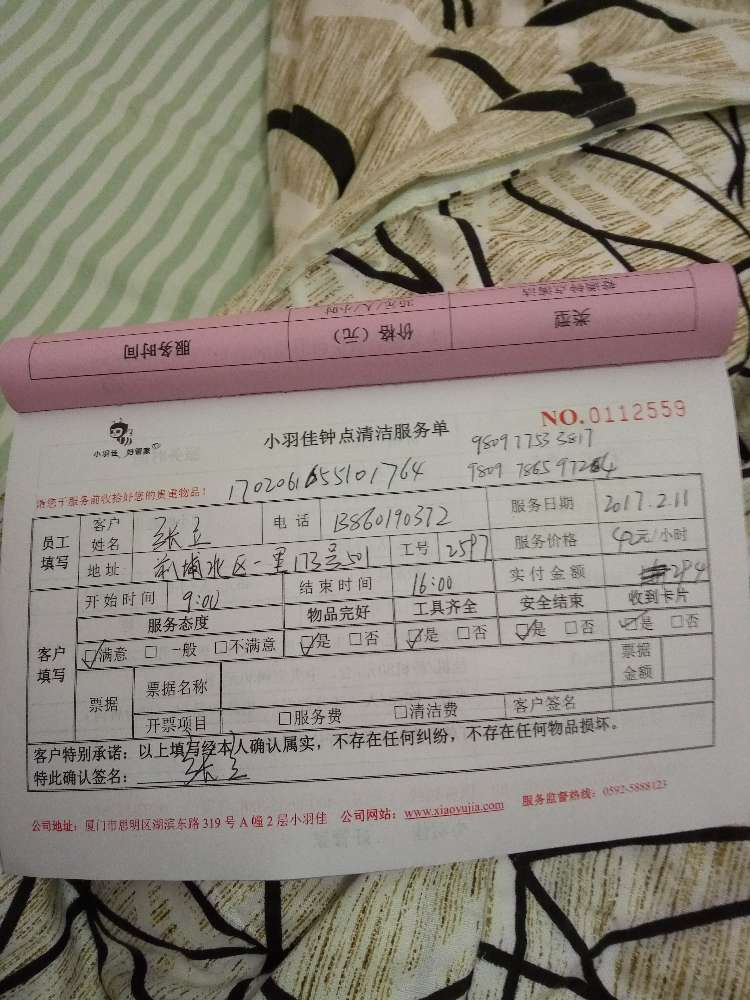 服务时间 价格（元） 类型
35元/人/小时 普通钟点清洁
小羽佳 好管家
小羽佳钟点清洁服务单
NO.0112559
980977533817
请您于服务前收拾好您的贵重物品！
员工填写 客户姓名 电话 13860190372 服务日期 2017.2.11
地址 前埔北区一里173号501 工号 2597 服务价格 42元/小时
开始时间 9:00 结束时间 16:00 实付金额 294
客户填写 服务态度 物品完好 工具齐全 安全结束 收到卡片
☑满意 □一般 □不满意 ☑是 □否 ☑是 □否 ☑是 □否 ☑是 □否
票据 票据名称 票据金额
开票项目 □服务费 □清洁费 客户签名
客户特别承诺：以上填写经本人确认属实，不存在任何纠纷，不存在任何物品损坏。
特此确认签名：
公司地址：厦门市思明区湖滨东路319号A幢2层小羽佳 公司网站：www.xiaoyujia.com 服务监督热线：0592-5888123